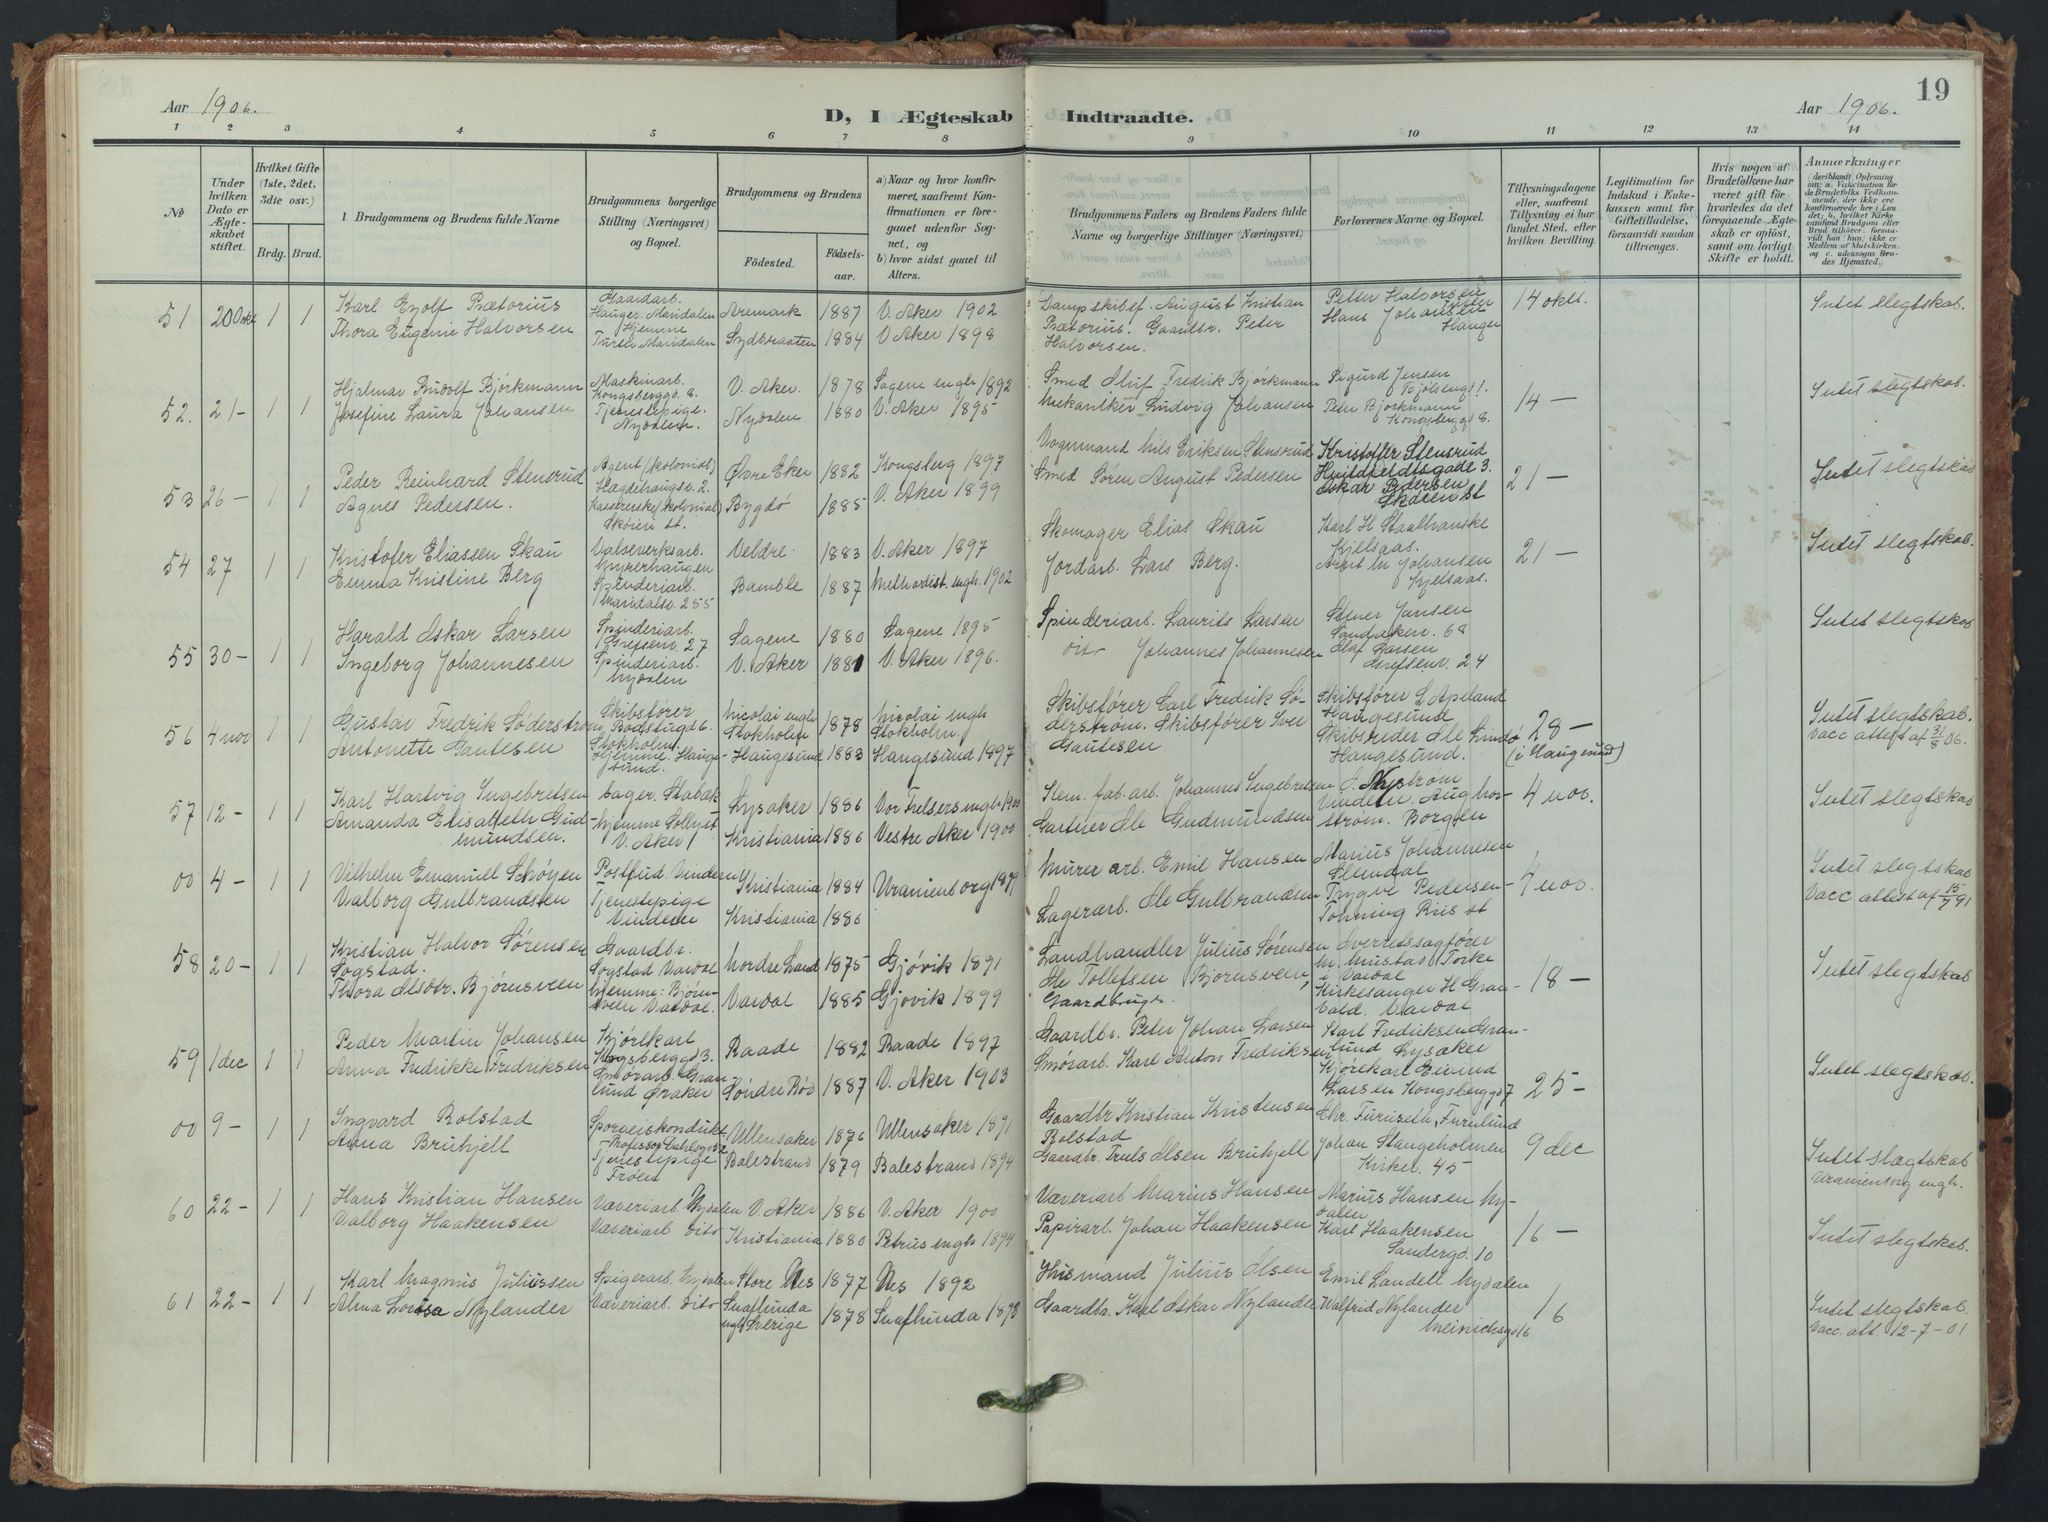 Aar 1906.
D, I Ægteskab Indtraadte.
Aar 1906.
19
1 2 3 4 5 6 7 8 9 10 11 12 13 14
No
Under hvilken Dato er Ægteskabet stiftet.
Hvilket Gifte (1ste, 2det, 3die osv.)
Brdg. Brud.
1. Brudgommens og Brudens fulde Navne
Brudgommens borgerlige Stilling (Næringsvei) og Bopæl.
Brudgommens og Brudens
Fødested.
Fødselsaar.
a) Naar og hvor konfirmeret, saafremt Konfirmationen er foregaaet udenfor Sognet, og
b) hvor sidst gaaet til Alters.
Brudgommens Faders og Brudens Faders fulde Navne og borgerlige Stillinger (Næringsvei)
Forlovernes Navne og Bopæl.
Tillysningsdagene eller, saafremt Tillysning ei har fundet Sted, efter hvilken Bevilling.
Legitimation for Indskud i Enkekassen samt for Giftetilladelse, forsaavidt saadan tiltrænges.
Hvis nogen af Brudefolkene har været gift før hvorledes da det foregaaende Ægteskab er opløst, samt om lovligt Skifte er holdt.
Anmærkninger
51 20 Okt 1 1
Karl Eyolf Prætorius
Thora Eugenie Halvorsen
Gaardarb.
Hauger. Maridalen
Hjemme
Turter Maridalen
Aremark 1887 V. Aker 1902
Sydbraaten 1884 V. Aker 1898
Dampskibsf. August Kristian
Prætorius. Gaardbr. Peter
Halvorsen.
Peter Halvorsen
Turter
Hans Johansen
Hauger
14 okt.
Intet slegtskab.
52. 21 - 1 1
Hjalmar Rudolf Bjørkmann
Josefine Laura Johansen
Maskinarb.
Kongsberggd. 8.
Tjenestepige.
Nydalen
V. Aker. 1878 Sagene engh 1892
Nydalen 1880 V. Aker 1895
Smed Oluf Fredrik Bjørkmann
Mekaniker Ludvig Johansen
Sigurd Jensen
Bjølsengt 1.
Peter Bjørkmann
Kongsberggd 8.
14 -
Intet slegtskab.
53 26 - 1 1
Peder Reinhard Stensrud
Agnes Pedersen.
Agent (kolonial)
Hagdehaugsv. 2.
Kassererske (kolonial)
Skøien st.
Øvre Eker 1882 Kongsberg 1897
Bygdø 1885 V. Aker 1899
Vognmand Nils Eriksen Stensrud
Smed Søren August Pedersen
Kristoffer Stensrud
Hvildfeldtsgade 3.
Oskar Pedersen
Skøien st
21 -
Intet slegtskab
54 27 1 1
Kristofer Eliassen Skau
Emma Kristine Berg
Valseverksarb.
Myrerhaugen
Spinderiarb.
Maridalsv. 255
Veldre 1883 V. Aker 1897
Bamble 1887 Methodist. engh. 1902
Skomager Elias Skau
Jordarb. Lars Berg.
Karl H Staalhanske
Kjelsaas.
Arnt M Johansen
Kjelsaas.
21 -
Intet slegtskab.
55 30 - 1 1
Harald Oskar Larsen
Ingeborg Johannesen
Spinderiarb.
Grefsenv. 27
Spinderiarb.
Nydalen
Sagene 1880 Sagene 1895
V. Aker 1881 V. Aker 1896.
Spinderiarb. Laurits Larsen
dito Johannes Johannesen
Stener Jansen
Sandakerv. 68
Olaf Larsen
Grefsenv. 24
Intet slegtskab
56 4 nov 1 1
Gustav Fredrik Söderström
Antonette Gautesen
Skibsfører
Rødstugd 6.
Stokholm.
Hjemme. Haugesund.
Nicolai engh Stokholm 1878 Nicolai engh Stokholm.
Haugesund 1883 Haugesund 1897
Skibsfører Carl Fredrik Söderström.
Skibsfører Iver
Gautesen
Skibsfører L Apeland
Haugesund
Skibsreder Ole Lindø
Haugesund.
28 -
(i Haugesund)
Intet slegtskab.
Vacc attest af 31/8 06.
57 12 - 1 1
Karl Hartvig Ingebretsen
Amanda Elisabeth Gudmundsen.
Lager. Stabæk
Hjemme Sollyst
V. Aker
Lysaker 1886 Vor Frelsers engh 1900
Kristiania 1886 Vestre Aker 1900
Kem. fab. arb. Johannes Ingebretsen
Gartner Ole Gudmundsen
Nystrøm
Vinderen.
Borgen
4 nov.
Intet slegtskab
00 4 - 1 1
Vilhelm Emanuel Schøyen
Valborg Gulbrandsen
Postbud. Vinderen
Tjenestepige
Vinderen
Kristiania 1884 Uranienborg 1899
Kristiania 1886
Murer arb. Emil Hansen
Lagerarb. Ole Gulbrandsen
Marius Johannesen
Slemdal
Trygve Pedersen
Tohning Riis st
4 nov.
Intet slegtskab
Vacc attest af 15/7 91
58 20 - 1 1
Kristian Halvor Sørensen
Sogstad.
Thora Olsdtr. Bjørnsveen
Gaardbr.
Sogstad Vardal
Hjemme: Bjørnsveen Vardal.
Nordre Land 1875 Gjøvik 1891
Vardal 1885 Gjøvik 1899
Landhandler Julius Sørensen
Ole Tollefsen Bjørnsveen,
Gaardbruger
Overretssagfører
M. Mustad Torke
i Vardal
Kirkesanger H Granvold. Vardal
18 -
Intet slegtskab
59 1 dec 1 1
Peder Martin Johansen
Anna Fredrikke Fredriksen
Kjørekarl
Kongsberggd 3.
Smørarb. Granlund Øraker
Raade 1882 Raade 1897
Søndre Rød 1887 V. Aker 1903
Gaardbr. Peter Johan Larsen
Smørarb. Karl Anton Fredriksen
Karl Fredriksen Granlund Lysaker
Kjørekarl Eivind
Larsen Kongsberggd 7
25 -
Intet slegtskab.
00 9 - 1 1
Ingvard Rolstad
Anna Bruhjell
Sporveiskonduktør
Professor Dahlsgd 32
Tjenestepige
Frøen
Ullensaker 1876 Ullensaker 1891
Balestrand 1879 Balestrand 1894
Gaardbr Kristian Kristensen
Rolstad
Gaardbr. Truls Olsen Bruhjell
Chr. Furuseth, Furulund
Johan Slangeholmen
Kirkev. 45
9 dec
Intet slægtskab
Uranienborg engh.
60 22 - 1 1
Hans Kristian Hansen
Valborg Haakensen
Væveriarb Nydalen
Væveriarb dito
V. Aker 1886 V. Aker 1900
Kristiania 1880 Petrus engh 1894
Væveriarb Marius Hansen
Papirarb. Johan Haakensen
Marius Hansen Nydalen
Karl Haakensen
Sandergd. 10
16 -
Intet slegtskab.
61 22 - 1 1
Karl Magnus Juliussen
Alma Lovisa Nylander
Spigerarb. Nydalen
Væveriarb. dito
Store Nes 1877 Nes 1892
Snaflunda engh Sverige 1878 Snaflunda 1893
Husmand Julius Olsen
Gaardbr. Karl Oskar Nylander
Emil Landell Nydalen
Walfrid Nylander
Meinichsgd 16
16
Intet slegtskab.
Vacc. att. 12-7-01